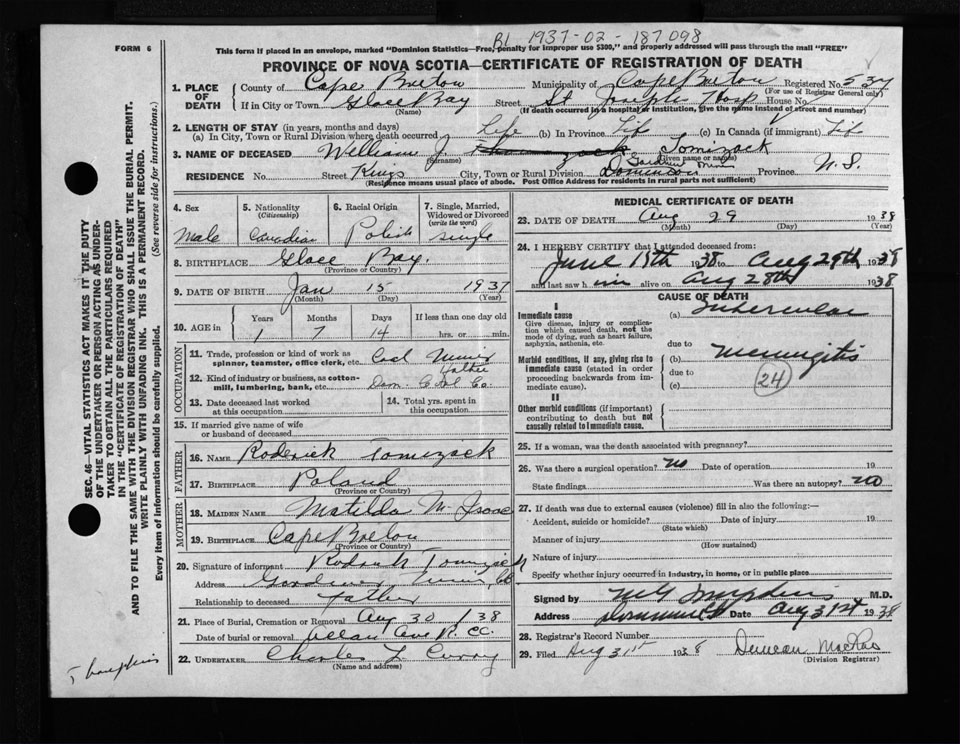 B1 1937-02-187098
FORM 6
This form if placed in an envelope, marked "Dominion Statistics—Free, penalty for improper use $300," and properly addressed will pass through the mail "FREE"
PROVINCE OF NOVA SCOTIA—CERTIFICATE OF REGISTRATION OF DEATH
1. PLACE OF DEATH County of Cape Breton Municipality of Cape Breton Registered No. 537
(For use of Registrar General only)
If in City or Town Glace Bay Street St Joseph Hosp House No.
(Name) (If death occurred in a hospital or institution, give the name instead of street and number)
2. LENGTH OF STAY (in years, months and days)
(a) In City, Town or Rural Division where death occurred Life (b) In Province Life (c) In Canada (if immigrant) Life
3. NAME OF DECEASED William J. Tomizack
(Surname) (Given name or names)
RESIDENCE No. Street Kings City, Town or Rural Division Gardiner Mines Dominion Province N.S.
(Residence means usual place of abode. Post Office Address for residents in rural parts not sufficient)
4. Sex Male
5. Nationality (Citizenship) Canadian
6. Racial Origin Polish
7. Single, Married, Widowed or Divorced (write the word) Single
8. BIRTHPLACE Glace Bay.
(Province or Country)
9. DATE OF BIRTH Jan 15 1937
(Month) (Day) (Year)
10. AGE in Years Months Days If less than one day old
1 7 14 hrs. or min.
OCCUPATION
11. Trade, profession or kind of work as spinner, teamster, office clerk, etc. Coal Miner
Father
12. Kind of industry or business, as cotton-mill, lumbering, bank, etc. Dom. Coal Co.
13. Date deceased last worked at this occupation
14. Total yrs. spent in this occupation
15. If married give name of wife or husband of deceased
FATHER
16. Name Roderick Tomizack
17. Birthplace Poland
(Province or Country)
MOTHER
18. MAIDEN NAME Matilda M. Isaac
19. BIRTHPLACE Cape Breton
(Province or Country)
20. Signature of informant Roderick Tomizack
Address Gardiner Mines, CB
Relationship to deceased Father
21. Place of Burial, Cremation or Removal Aug 30 / 38
Date of burial or removal
22. UNDERTAKER Charles L Curry
(Name and address)
MEDICAL CERTIFICATE OF DEATH
23. DATE OF DEATH Aug 29 1938
(Month) (Day) (Year)
24. I HEREBY CERTIFY that I attended deceased from:
June 15th 1938 to Aug 29th 1938
and last saw him alive on Aug 28th 1938
CAUSE OF DEATH
I
Immediate cause
Give disease, injury or complication which caused death, not the mode of dying, such as heart failure, asphyxia, asthenia, etc.
(a) Tubercular
due to
Morbid conditions, if any, giving rise to immediate cause (stated in order proceeding backwards from immediate cause).
(b) Meningitis
due to
(c)
24
II
Other morbid conditions (if important) contributing to death but not causally related to immediate cause.
25. If a woman, was the death associated with pregnancy?
26. Was there a surgical operation? No Date of operation 19
State findings Was there an autopsy? No
27. If death was due to external causes (violence) fill in also the following:—
Accident, suicide or homicide? Date of injury 19
(State which)
Manner of injury
(How sustained)
Nature of injury
Specify whether injury occurred in industry, in home, or in public place
Signed by M.D.
Address Dominion Date Aug 31st 1938
28. Registrar's Record Number
29. Filed Aug 31st 1938 Duncan MacRae
(Division Registrar)
SEC. 46—VITAL STATISTICS ACT MAKES IT THE DUTY
OF THE UNDERTAKER OR PERSON ACTING AS UNDER-
TAKER TO OBTAIN ALL THE PARTICULARS REQUIRED
IN THE "CERTIFICATE OF REGISTRATION OF DEATH"
AND TO FILE THE SAME WITH THE DIVISION REGISTRAR WHO SHALL ISSUE THE BURIAL PERMIT.
WRITE PLAINLY WITH UNFADING INK. THIS IS A PERMANENT RECORD.
Every item of information should be carefully supplied. (See reverse side for instructions.)